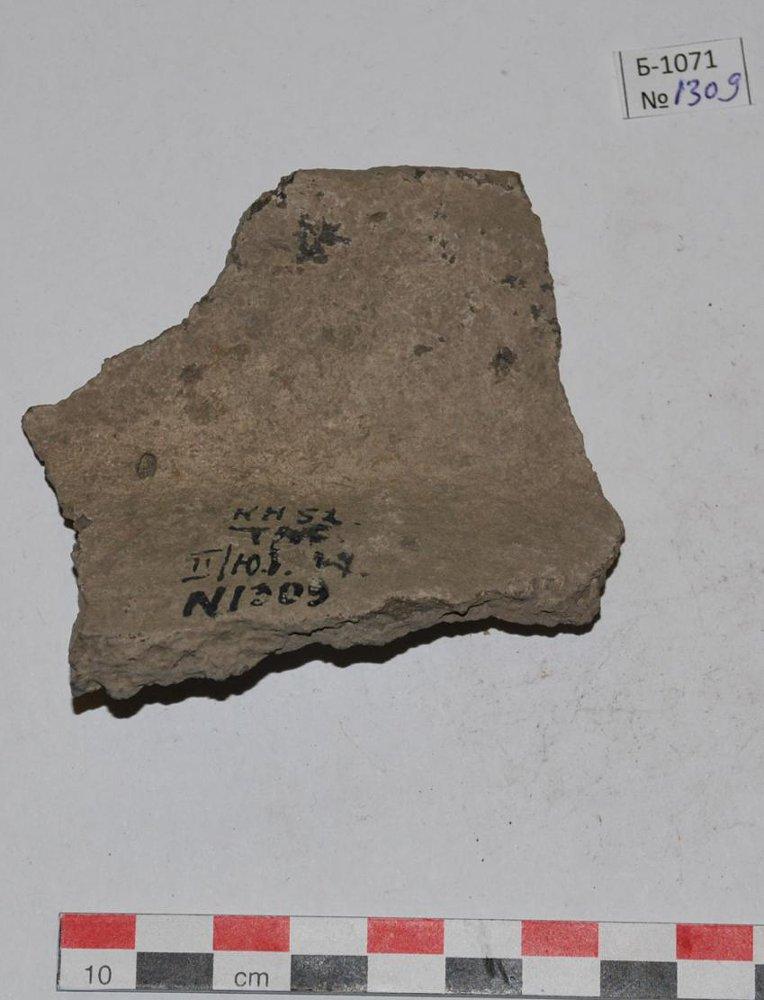 Б-1071
№ 1309
КН 52
II/Ю.
N1309
10 cm